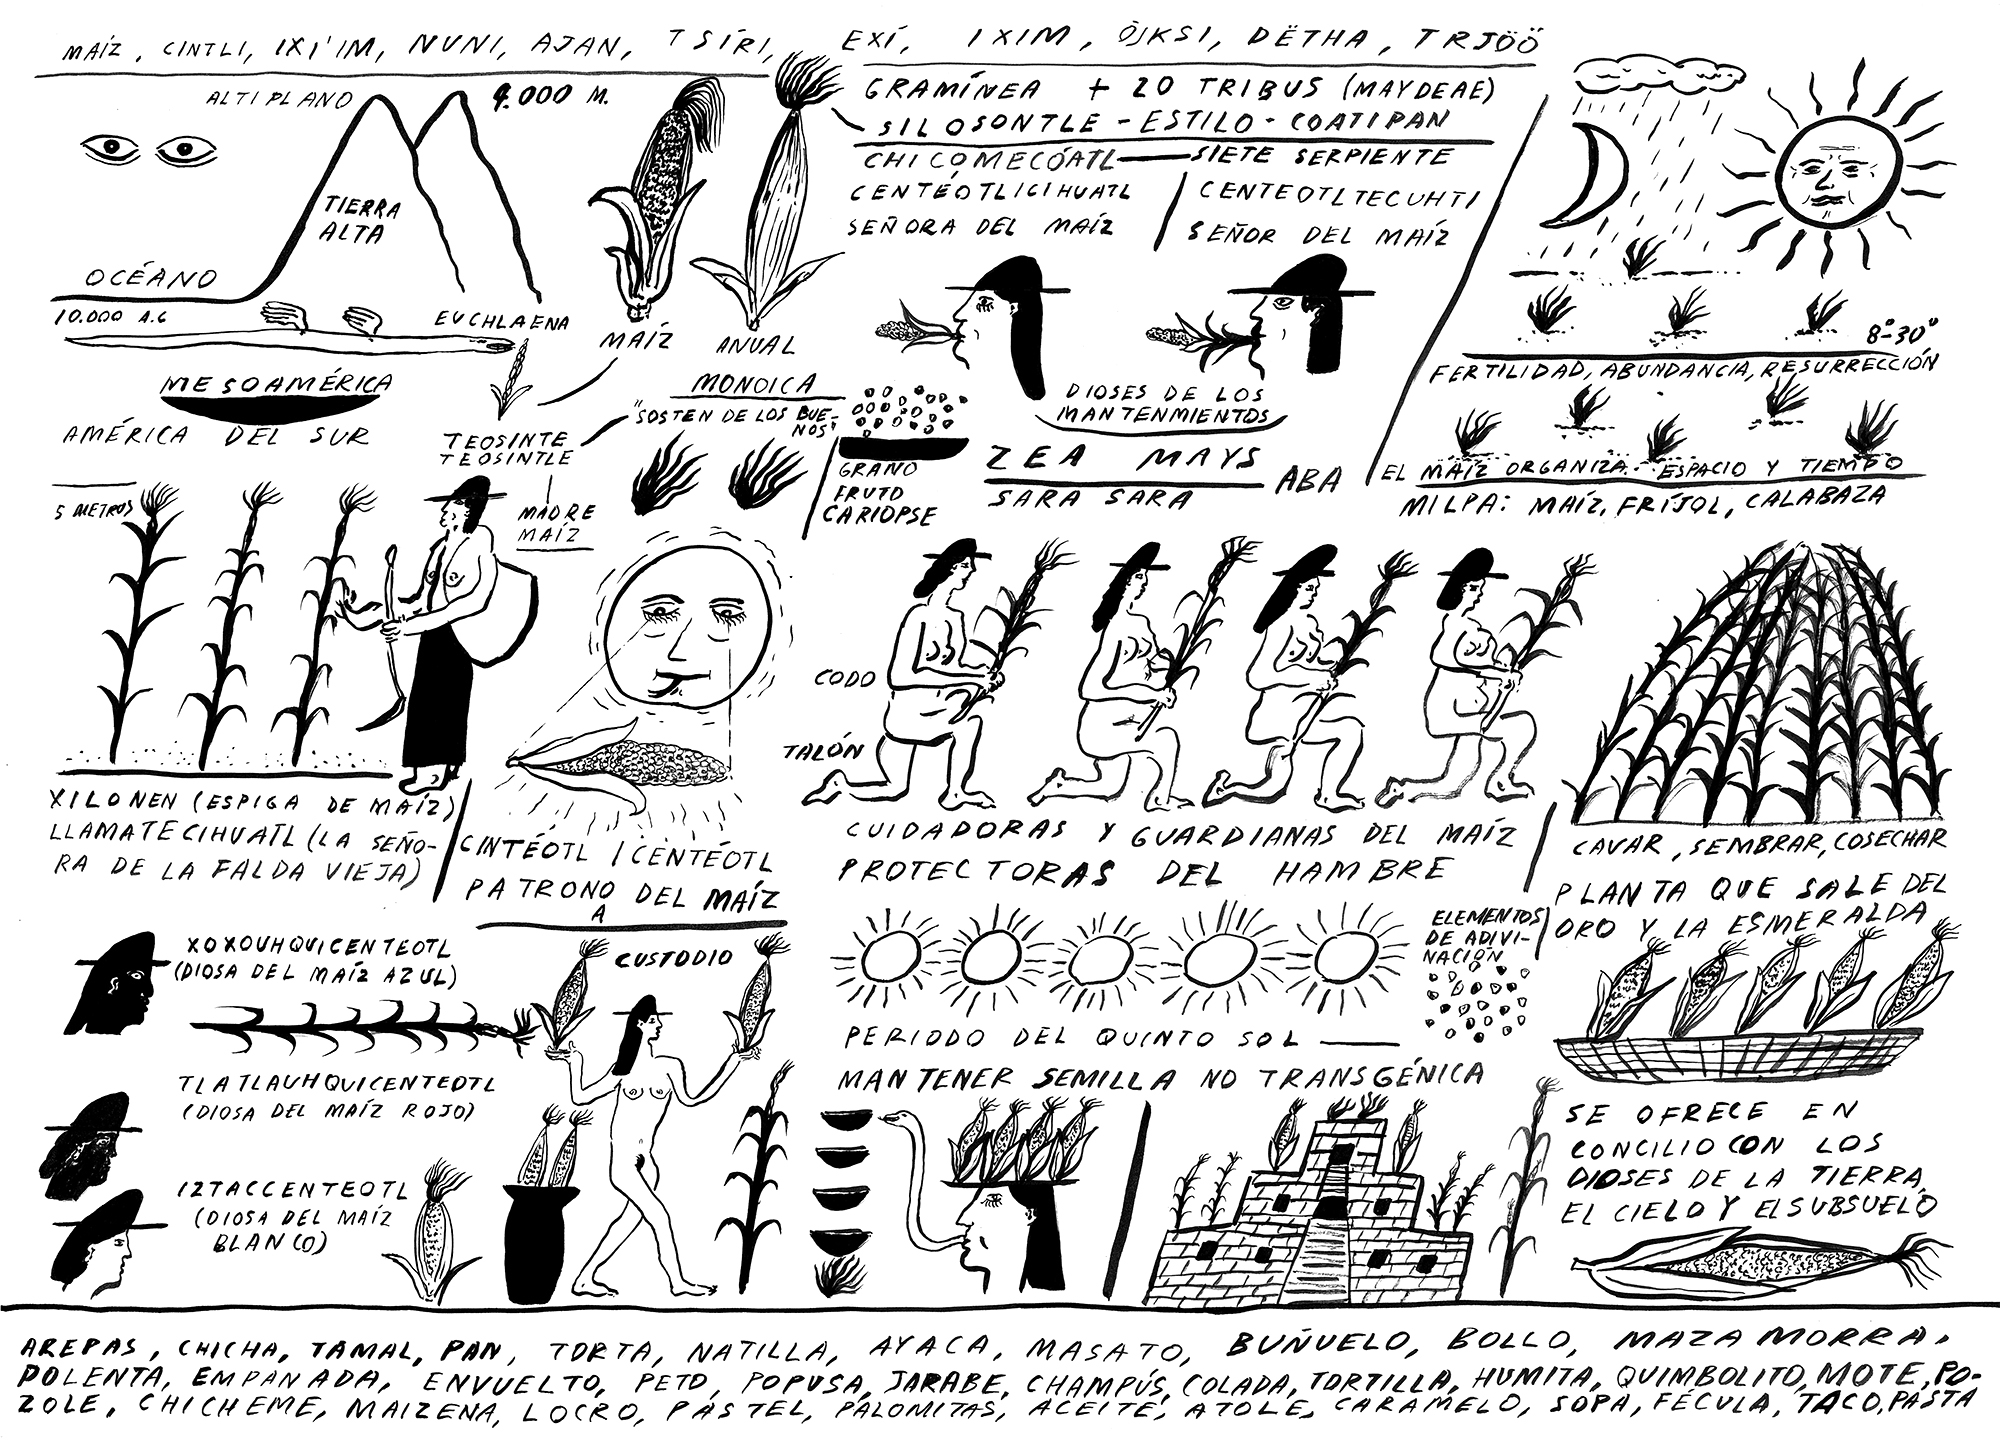 MAÍZ, CINTLI, IXI'IM, NUNI, AJAN, TSÍRI, EXÍ, IXIM, ÖJKSI, DËTHA, TRJÖÖ
ALTIPLANO
4.000 M.
TIERRA
ALTA
OCÉANO
10.000 A.C
EUCHLAENA
MESOAMÉRICA
AMÉRICA DEL SUR
TEOSINTE
TEOSINTLE
MADRE
MAÍZ
MAÍZ
ANUAL
MONOICA
"SOSTEN DE LOS BUE-
NOS"
GRAMÍNEA + 20 TRIBUS (MAYDEAE)
SILOSONTLE - ESTILO - COATIPAN
CHICOMECÓATL — SIETE SERPIENTE
CENTÉOTLICIHUATL
SEÑORA DEL MAÍZ
CENTEOTLTECUHTI
SEÑOR DEL MAÍZ
DIOSES DE LOS
MANTENMIENTOS
GRANO
FRUTO
CARIOPSE
ZEA MAYS
SARA SARA
ABA
8°-30°
FERTILIDAD, ABUNDANCIA, RESURRECCIÓN
EL MAÍZ ORGANIZA ESPACIO Y TIEMPO
MILPA: MAÍZ, FRÍJOL, CALABAZA
5 METROS
XILONEN (ESPIGA DE MAÍZ)
LLAMATECIHUATL (LA SEÑO-
RA DE LA FALDA VIEJA)
CINTÉOTL / CENTÉOTL
PATRONO DEL MAÍZ
A
CODO
TALÓN
CUIDADORAS Y GUARDIANAS DEL MAÍZ
PROTECTORAS DEL HAMBRE
CAVAR, SEMBRAR, COSECHAR
PLANTA QUE SALE DEL
ORO Y LA ESMERALDA
XOXOUHQUICENTEOTL
(DIOSA DEL MAÍZ AZUL)
TLATLAUHQUICENTEOTL
(DIOSA DEL MAÍZ ROJO)
IZTACCENTEOTL
(DIOSA DEL MAÍZ
BLANCO)
CUSTODIO
ELEMENTOS
DE ADIVI-
NACIÓN
PERIODO DEL QUINTO SOL —
MANTENER SEMILLA NO TRANSGÉNICA
SE OFRECE EN
CONCILIO CON LOS
DIOSES DE LA TIERRA,
EL CIELO Y EL SUBSUELO
AREPAS, CHICHA, TAMAL, PAN, TORTA, NATILLA, AYACA, MASATO, BUÑUELO, BOLLO, MAZAMORRA,
POLENTA, EMPANADA, ENVUELTO, PETO, POPUSA, JARABE, CHAMPÚS, COLADA, TORTILLA, HUMITA, QUIMBOLITO, MOTE, PO-
ZOLE, CHICHEME, MAIZENA, LOCRO, PASTEL, PALOMITAS, ACEITE, ATOLE, CARAMELO, SOPA, FÉCULA, TACO, PASTA